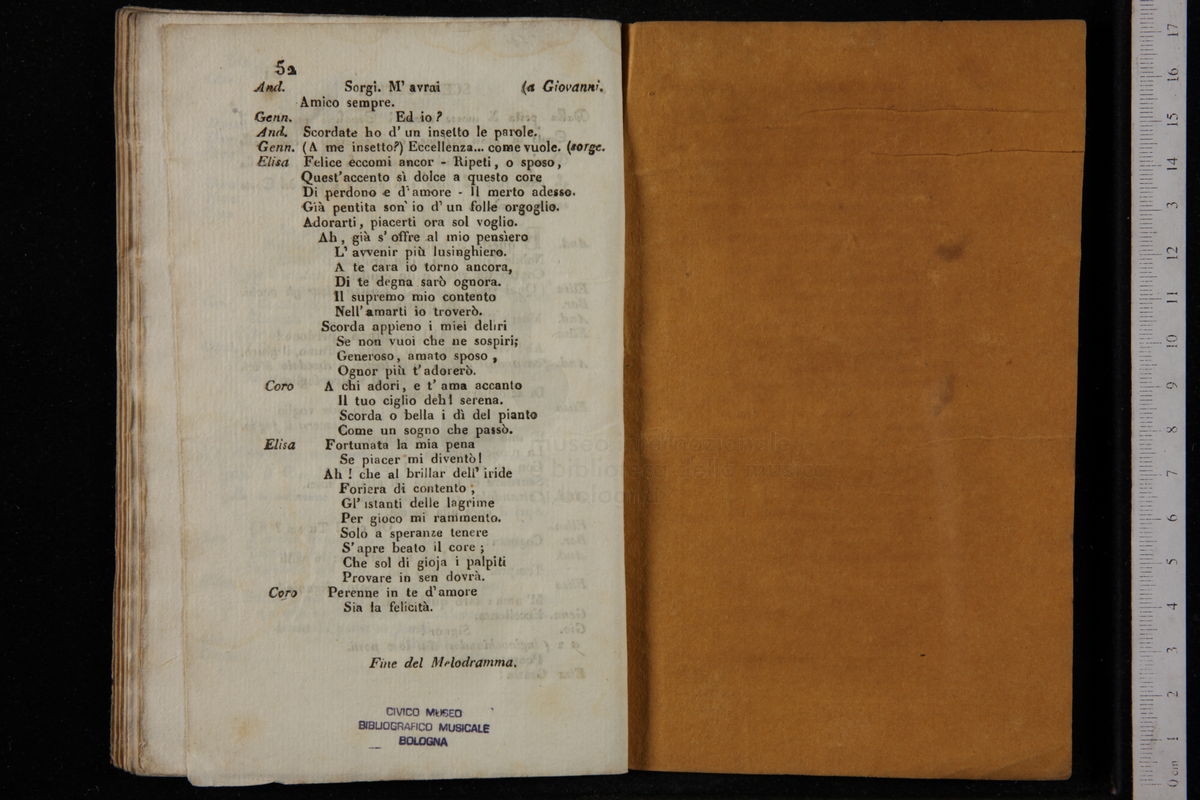 52
And. Sorgi. M' avrai (a Giovanni.
Amico sempre.
Genn. Ed io?
And. Scordate ho d' un insetto le parole.
Genn. (A me insetto?) Eccellenza... come vuole. (sorge.
Elisa Felice eccomi ancor - Ripeti, o sposo,
Quest' accento sì dolce a questo core
Di perdono e d' amore - Il merto adesso.
Già pentita son' io d' un folle orgoglio.
Adorarti, piacerti ora sol voglio.
Ah, già s' offre al mio pensiero
L' avvenir più lusinghiero.
A te cara io torno ancora,
Di te degna sarò ognora.
Il supremo mio contento
Nell' amarti io troverò.
Scorda appieno i miei deliri
Se non vuoi che ne sospiri;
Generoso, amato sposo,
Ognor più t' adorerò.
Coro A chi adori, e t' ama accanto
Il tuo ciglio deh! serena.
Scorda o bella i dì del pianto
Come un sogno che passò.
Elisa Fortunata la mia pena
Se piacer mi diventò!
Ah! che al brillar dell' iride
Foriera di contento;
Gl' istanti delle lagrime
Per gioco mi rammento.
Solo a speranze tenere
S' apre beato il core;
Che sol di gioja i palpiti
Provare in sen dovrà.
Coro Perenne in te d' amore
Sia la felicità.
Fine del Melodramma.
CIVICO MUSEO
BIBLIOGRAFICO MUSICALE
BOLOGNA
0 cm 1 2 3 4 5 6 7 8 9 10 11 12 13 14 15 16 17